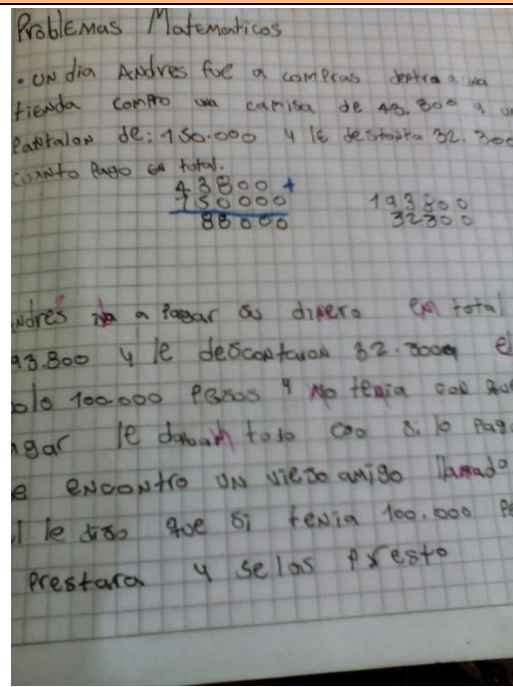 Problemas Matematicos
• UN dia Andres fue a compras dentro a una
tienda compro una camisa de 43.800 y un
Pantalon de: 150.000 y le
32.300
cuanto Pago en total.
43800 +
150000
88000
193800
32300
a Pagar su dinero en total
93.800 y le descontaron 32.300
olo 100.000 Pesos y No tenia con que
agar le daban todo eso si lo Pag
e encontro UN viejo amigo llamado
l le dijo que si tenia 100.000 Pe
Prestara y se los Presto